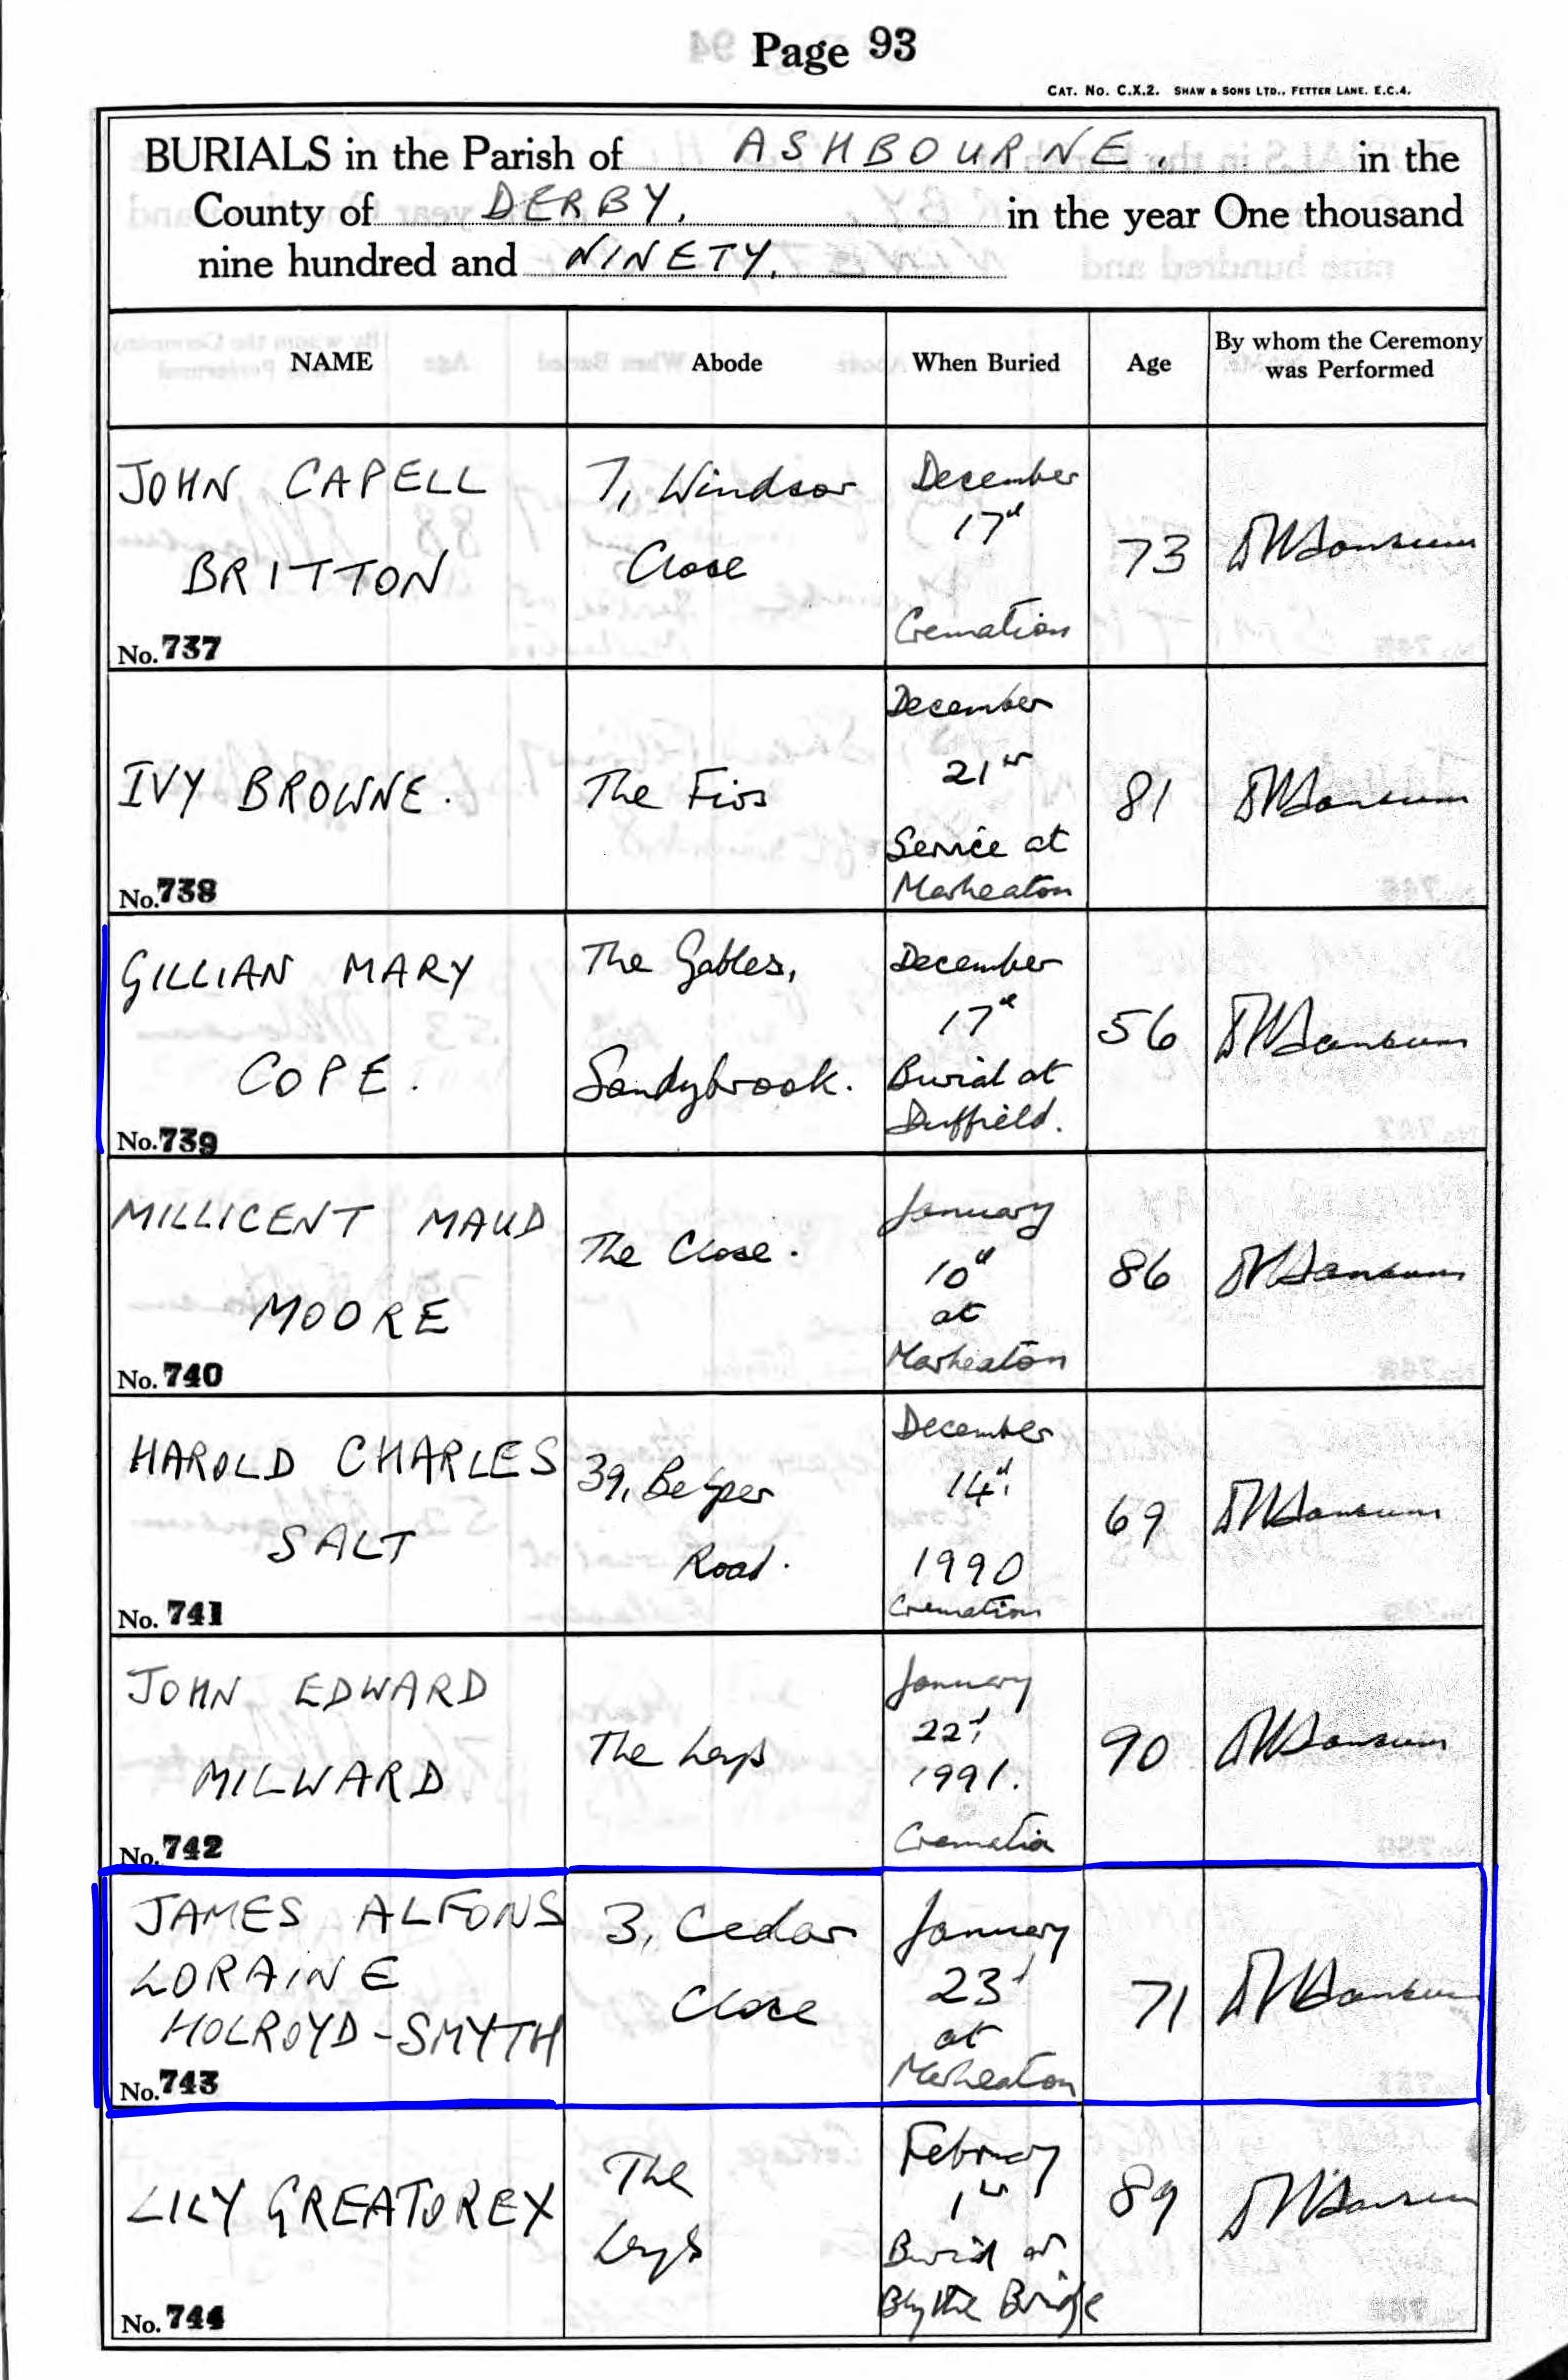 Page 93
CAT. No. C.X.2. SHAW & SONS LTD., FETTER LANE. E.C.4.
BURIALS in the Parish of ASHBOURNE. in the
County of DERBY. in the year One thousand
nine hundred and NINETY.
NAME Abode When Buried Age By whom the Ceremony was Performed
JOHN CAPELL
BRITTON
No. 737
7, Windsor
Close
December
17th
Cremation
73
IVY BROWNE.
No. 738
The Firs
December
21st
Service at
Markeaton
81
GILLIAN MARY
COPE.
No. 739
The Gables,
Sandybrook.
December
17th
Burial at
Duffield.
56
MILLICENT MAUD
MOORE
No. 740
The Close.
January
10th
at
Markeaton
86
HAROLD CHARLES
SALT
No. 741
39, Belper
Road.
December
14th
1990
Cremation
69
JOHN EDWARD
MILWARD
No. 742
The Leys
January
22d
1991.
Crematio
90
JAMES ALFONS
LORAINE
HOLROYD-SMYTH
No. 743
3, Cedar
Close
January
23d
at
Markeaton
71
LILY GREATOREX
No. 744
The
Leys
February
1st
Burial at
Blythe Bridge
89